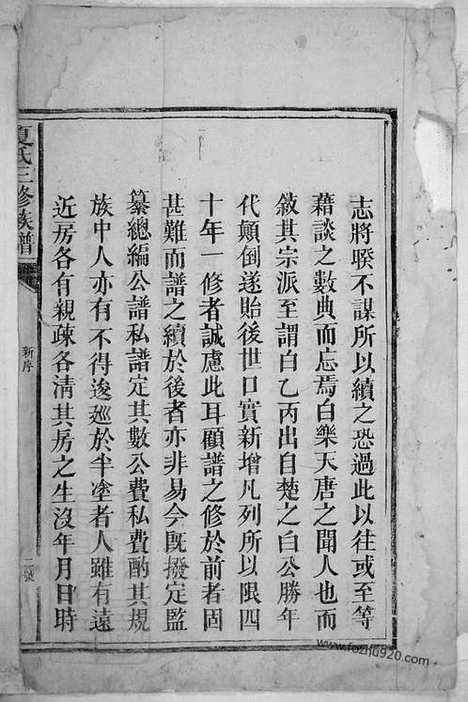 志將睽不謀所以續之恐過此以往或至等
藉談之數典而忘焉白樂天唐之聞人也而
敘其宗派至謂白乙丙出自楚之白公勝年
代顛倒遂貽後世口實新增凡列所以限四
十年一修者誠慮此耳顧譜之修於前者固
甚難而譜之續於後者亦非易今旣撥定監
纂總編公譜私譜定其數公費私費酌其規
族中人亦有不得逡廵於半塗者人雖有遠
近房各有親疎各清其房之生沒年月日時
夏氏三修族譜
新序
二號
www.fozhu920.com